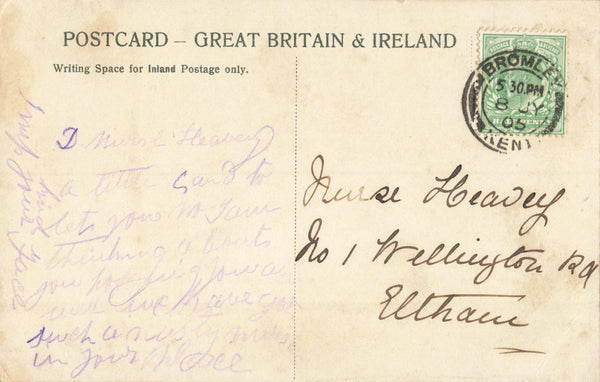 POSTCARD – GREAT BRITAIN & IRELAND
Writing Space for Inland Postage only.
BROMLEY
5 30 PM
8 JY
05
KENT
HALFPENNY
D Nurse Heavey
a little Card to
lets you no I am
thinking a bout
you hoping you
are
such a nasty nurse
in your place
your face
Nurse Heavey
No 1 Wellington Rd
Eltham